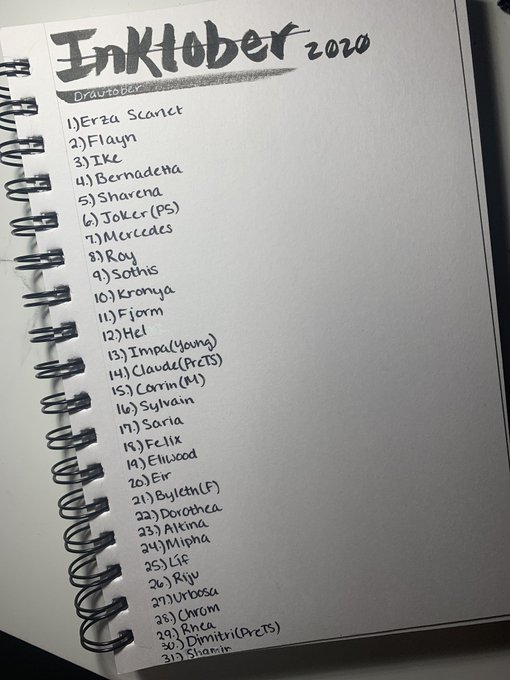 Inktober 2020
Drawtober
1.) Erza Scarlet
2.) Flayn
3.) Ike
4.) Bernadetta
5.) Sharena
6.) Joker (P5)
7.) Mercedes
8.) Roy
9.) Sothis
10.) Kronya
11.) Fjorm
12.) Hel
13.) Impa (Young)
14.) Claude (PreTS)
15.) Corrin (M)
16.) Sylvain
17.) Saria
18.) Felix
19.) Eliwood
20.) Eir
21.) Byleth (F)
22.) Dorothea
23.) Altina
24.) Mipha
25.) Líf
26.) Riju
27.) Urbosa
28.) Chrom
29.) Rhea
30.) Dimitri (PreTS)
31.) Shamir